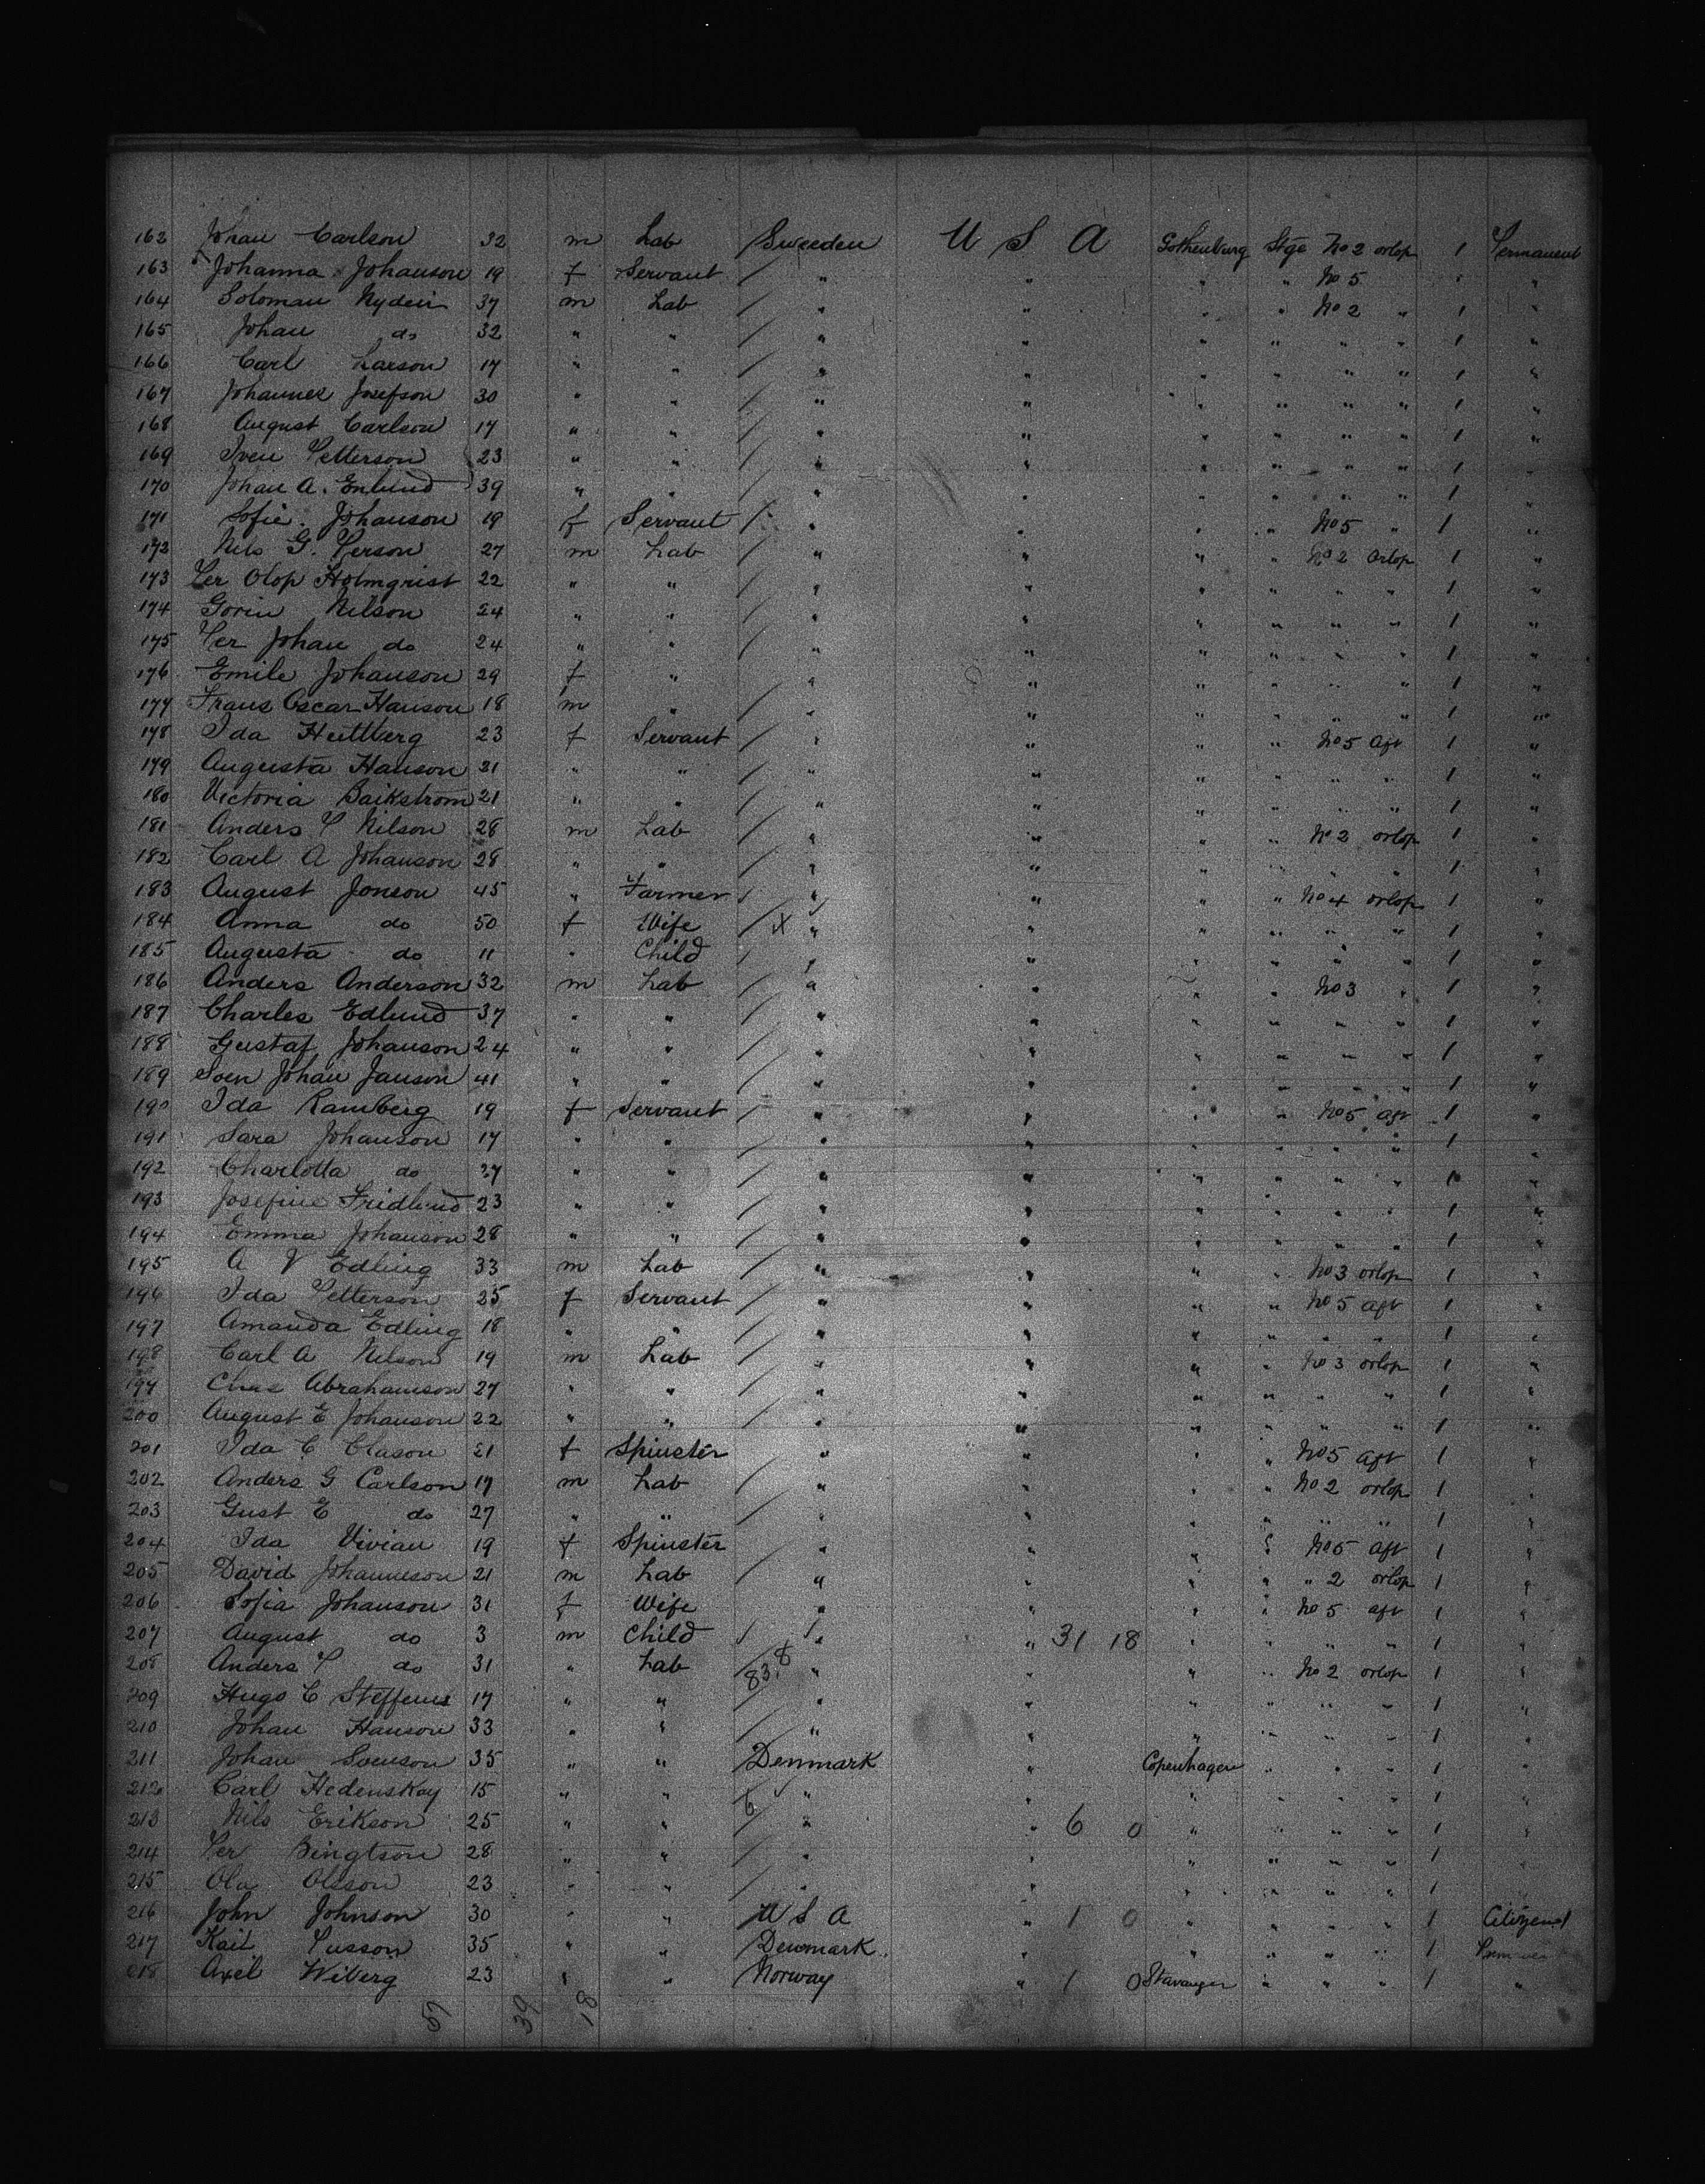 162 Johan Carlson 32 m Lab Sweeden U S A Gothenburg Stge No 2 orlop 1 Permanent
163 Johanna Johanson 19 f Servant / " " " " No 5 " "
164 Soloman Nyden 37 m Lab / " " " " No 2 " 1 "
165 Johan do 32 " " / " " " " " " 1 "
166 Carl Larson 17 " " / " " " " " " 1 "
167 Johannes Josefson 30 " " / " " " " " " 1 "
168 August Carlson 17 " " / " " " " " " 1 "
169 Sven Petterson 23 " " / " " " " " " 1 "
170 Johan A. Enlund 39 " " / " " " " " " 1 "
171 Sofie Johanson 19 f Servant / " " " " No 5 " 1 "
172 Nels G. Person 27 m Lab / " " " " No 2 orlop 1 "
173 Per Olop Holmqrist 22 " " / " " " " " " 1 "
174 Gorin Nilson 24 " " / " " " " " " 1 "
175 Per Johan do 24 " " / " " " " " " 1 "
176 Emile Johanson 29 f " / " " " " " " 1 "
177 Frans Oscar Hanson 18 m " / " " " " " " 1 "
178 Ida 23 f Servant / " " " " No 5 aft 1 "
179 Augusta Hanson 21 " " / " " " " " " 1 "
180 Victoria Baikstrom 21 " " / " " " " " " 1 "
181 Anders P Nilson 28 m Lab / " " " " No 2 orlop 1 "
182 Carl A Johanson 28 " " / " " " " " " 1 "
183 August Jonson 45 " Farmer / " " " " No 4 orlop 1 "
184 Anna do 50 f Wife / X " " " " " " 1 "
185 Augusta do 11 " Child / " " " " " " 1 "
186 Anders Anderson 32 m Lab / " " " " No 3 " 1 "
187 Charles Edlund 37 " " / " " " " " " 1 "
188 Gustaf Johanson 24 " " / " " " " " " 1 "
189 Sven Johan Janson 41 " " / " " " " " " 1 "
190 Ida Ramberg 19 f Servant / " " " " No 5 aft 1 "
191 Sara Johanson 17 " " / " " " " " " 1 "
192 Charlotta do 27 " " / " " " " " " 1 "
193 Josefine Fridlund 23 " " / " " " " " " 1 "
194 Emma Johanson 28 " " / " " " " " " 1 "
195 A V Edling 33 m Lab / " " " " No 3 orlop 1 "
196 Ida Petterson 25 f Servant / " " " " No 5 aft 1 "
197 Amanda Edling 18 " " / " " " " " " 1 "
198 Carl A Nelson 19 m Lab / " " " " No 3 orlop 1 "
199 Chas Abrahamson 27 " " / " " " " " " 1 "
200 August E Johanson 22 " " / " " " " " " 1 "
201 Ida C Clason 21 f Spinster " " " " No 5 aft 1 "
202 Anders G Carlson 19 m Lab / " " " " No 2 orlop 1 "
203 Gust E do 27 " " / " " " " " " 1 "
204 Ida Vivian 19 f Spinster " " " " No 5 aft 1 "
205 David Johanneson 21 m Lab / " " " " " 2 orlop 1 "
206 Sofia Johanson 31 f Wife " " " " No 5 aft 1 "
207 August do 3 m Child / " " 31 18 " " " " 1 "
208 Anders P do 31 " Lab / 83.8 " " " " No 2 orlop 1 "
209 Hugo C Steffens 17 " " / " " " " " " 1 "
210 Johan Hanson 33 " " / " " " " " " 1 "
211 Johan Svenson 35 " " Denmark " Copenhagen " " " 1 "
212 Carl Hedenskay 15 " " 6 " " " " " " 1 "
213 Nils Erikson 25 " " / " " 6 0 " " " " 1 "
214 Per Bingtson 28 " " / " " " " " " 1 "
215 Ola Olsson 23 " " / " " " " " " 1 "
216 John Johnson 30 " " U S A " 1 0 " " " " 1 Citizen
217 35 " " Denmark " " " " " 1
218 Axel Wiberg 23 " " Norway " 1 0 Stavanger " " " 1 "
57 39 18